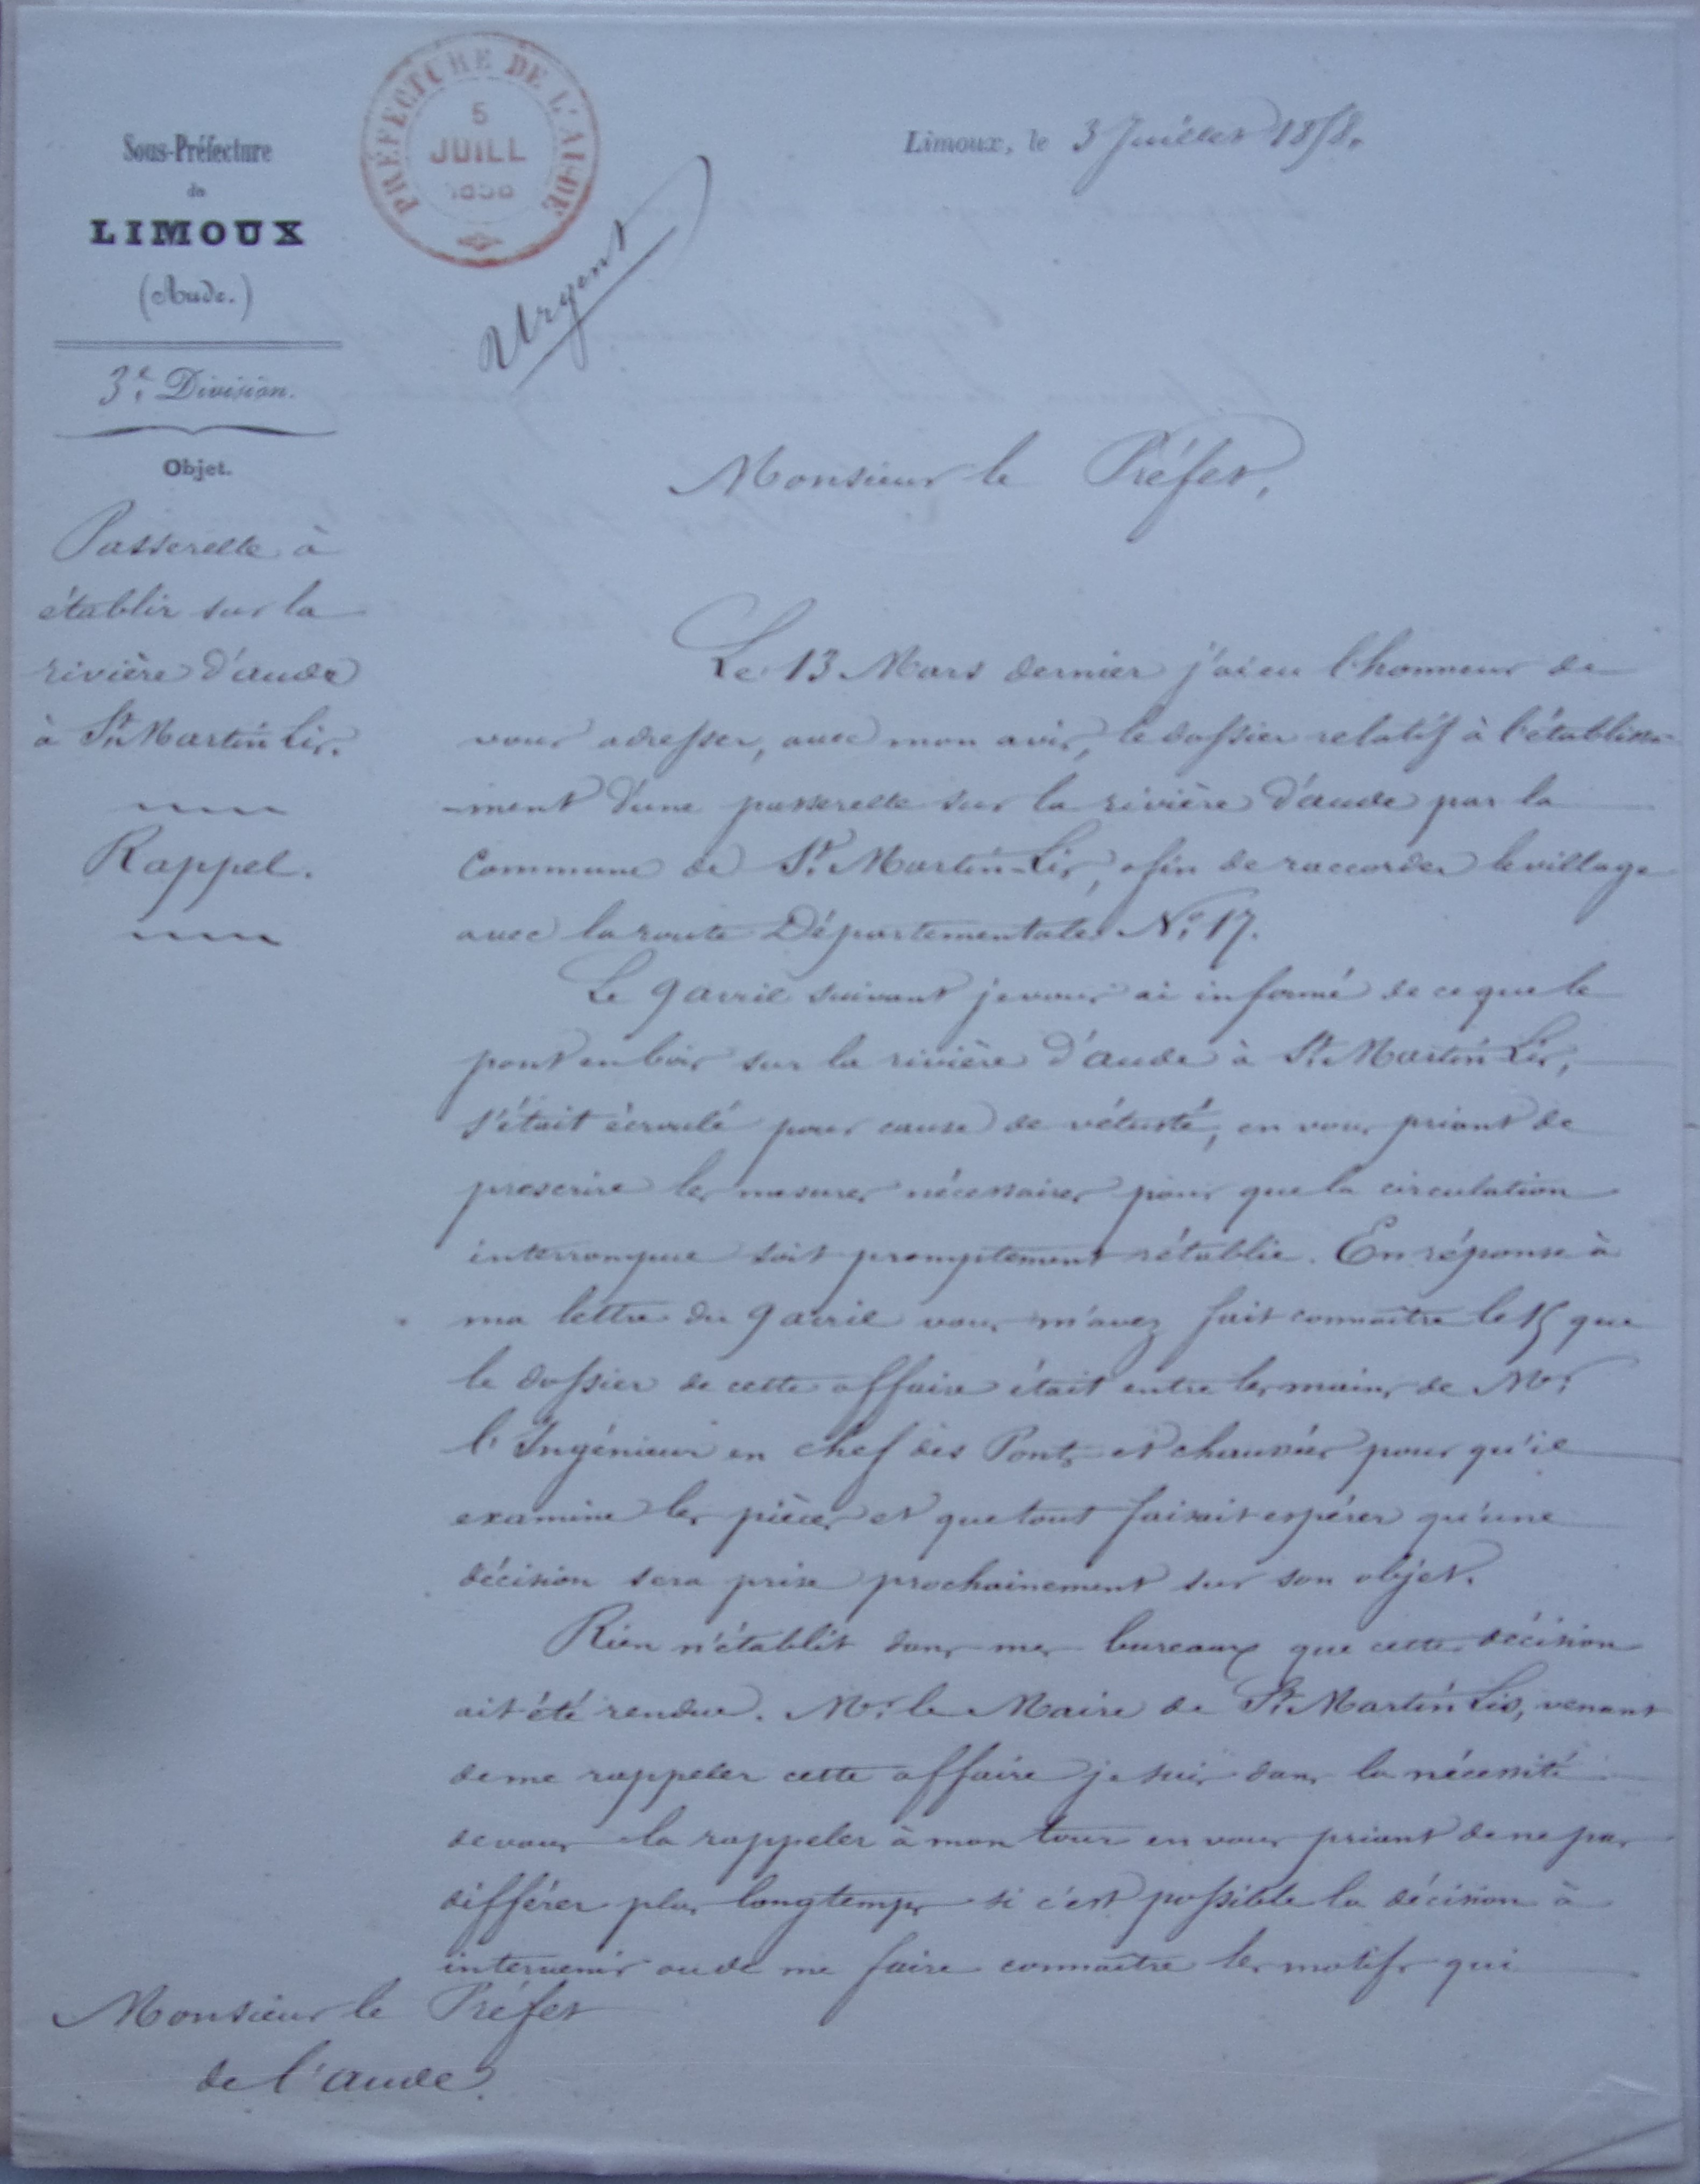 Sous-Préfecture
de
LIMOUX
(Aude.)
3e. Division.
Objet.
Passerelle à
établir sur la
rivière d'aude
à St. Martin Lis.
Rappel.
PRÉFECTURE DE L'AUDE
5
JUILL
1858
Urgent
Limoux, le 3 Juillet 1858.
Monsieur le Préfet,
Le 13 Mars dernier j'ai eu l'honneur de
vous adresser, avec mon avis, le dossier relatif à l'établisse-
-ment d'une passerelle sur la rivière d'aude par la
Commune de St. Martin-Lis, afin de raccorder le village
avec la route Départementale No. 17.
Le 9 avril suivant je vous ai informé de ce que le
pont en bois sur la rivière d'aude à St. Martin Lis,
s'était écroulé pour cause de vétusté, en vous priant de
prescrire les mesures nécessaires pour que la circulation
interrompue soit promptement rétablie. En réponse à
ma lettre du 9 avril vous m'avez fait connaître le 15 que
le dossier de cette affaire était entre les mains de Mr.
l'Ingénieur en chef des Ponts et chaussées pour qu'il
examine les pièces et que tout faisait espérer qu'une
décision sera prise prochainement sur son objet.
Rien n'établit dans mes bureaux que cette décision
ait été rendue. Mr. le Maire de St. Martin Lis, venant
de me rappeler cette affaire je suis dans la nécessité
de vous la rappeler à mon tour en vous priant de ne pas
différer plus longtemps si c'est possible la décision à
intervenir ou de me faire connaître les motifs qui
Monsieur le Préfet
de l'aude.